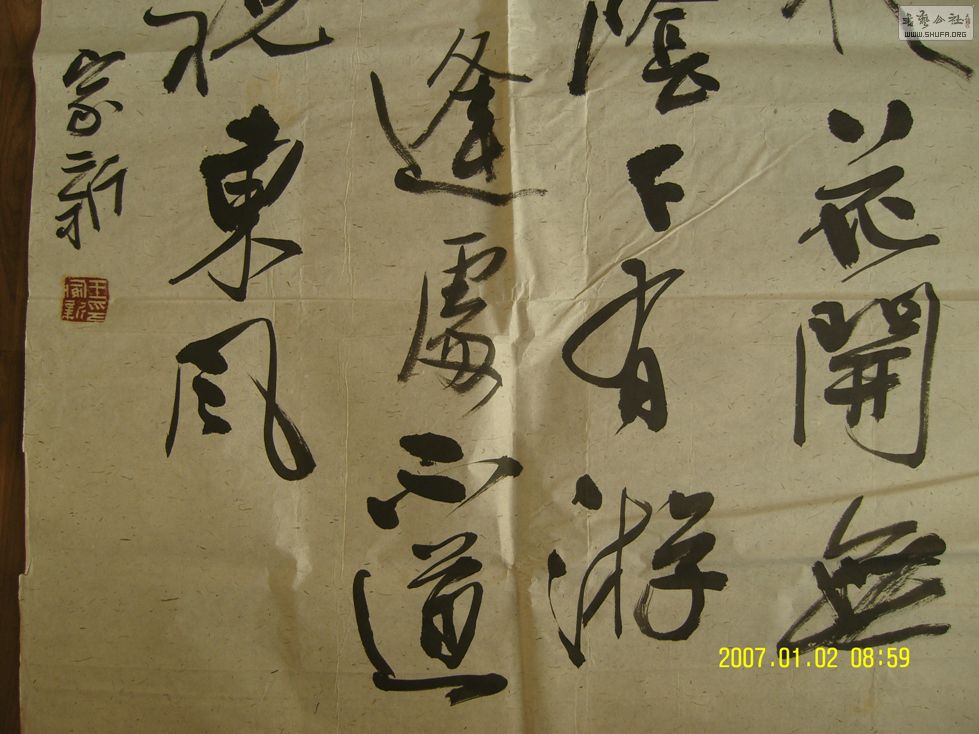 花開無
陰下有游
逢處不道
祝東風
家新
書藝公社
WWW.SHUFA.ORG
2007.01.02 08:59